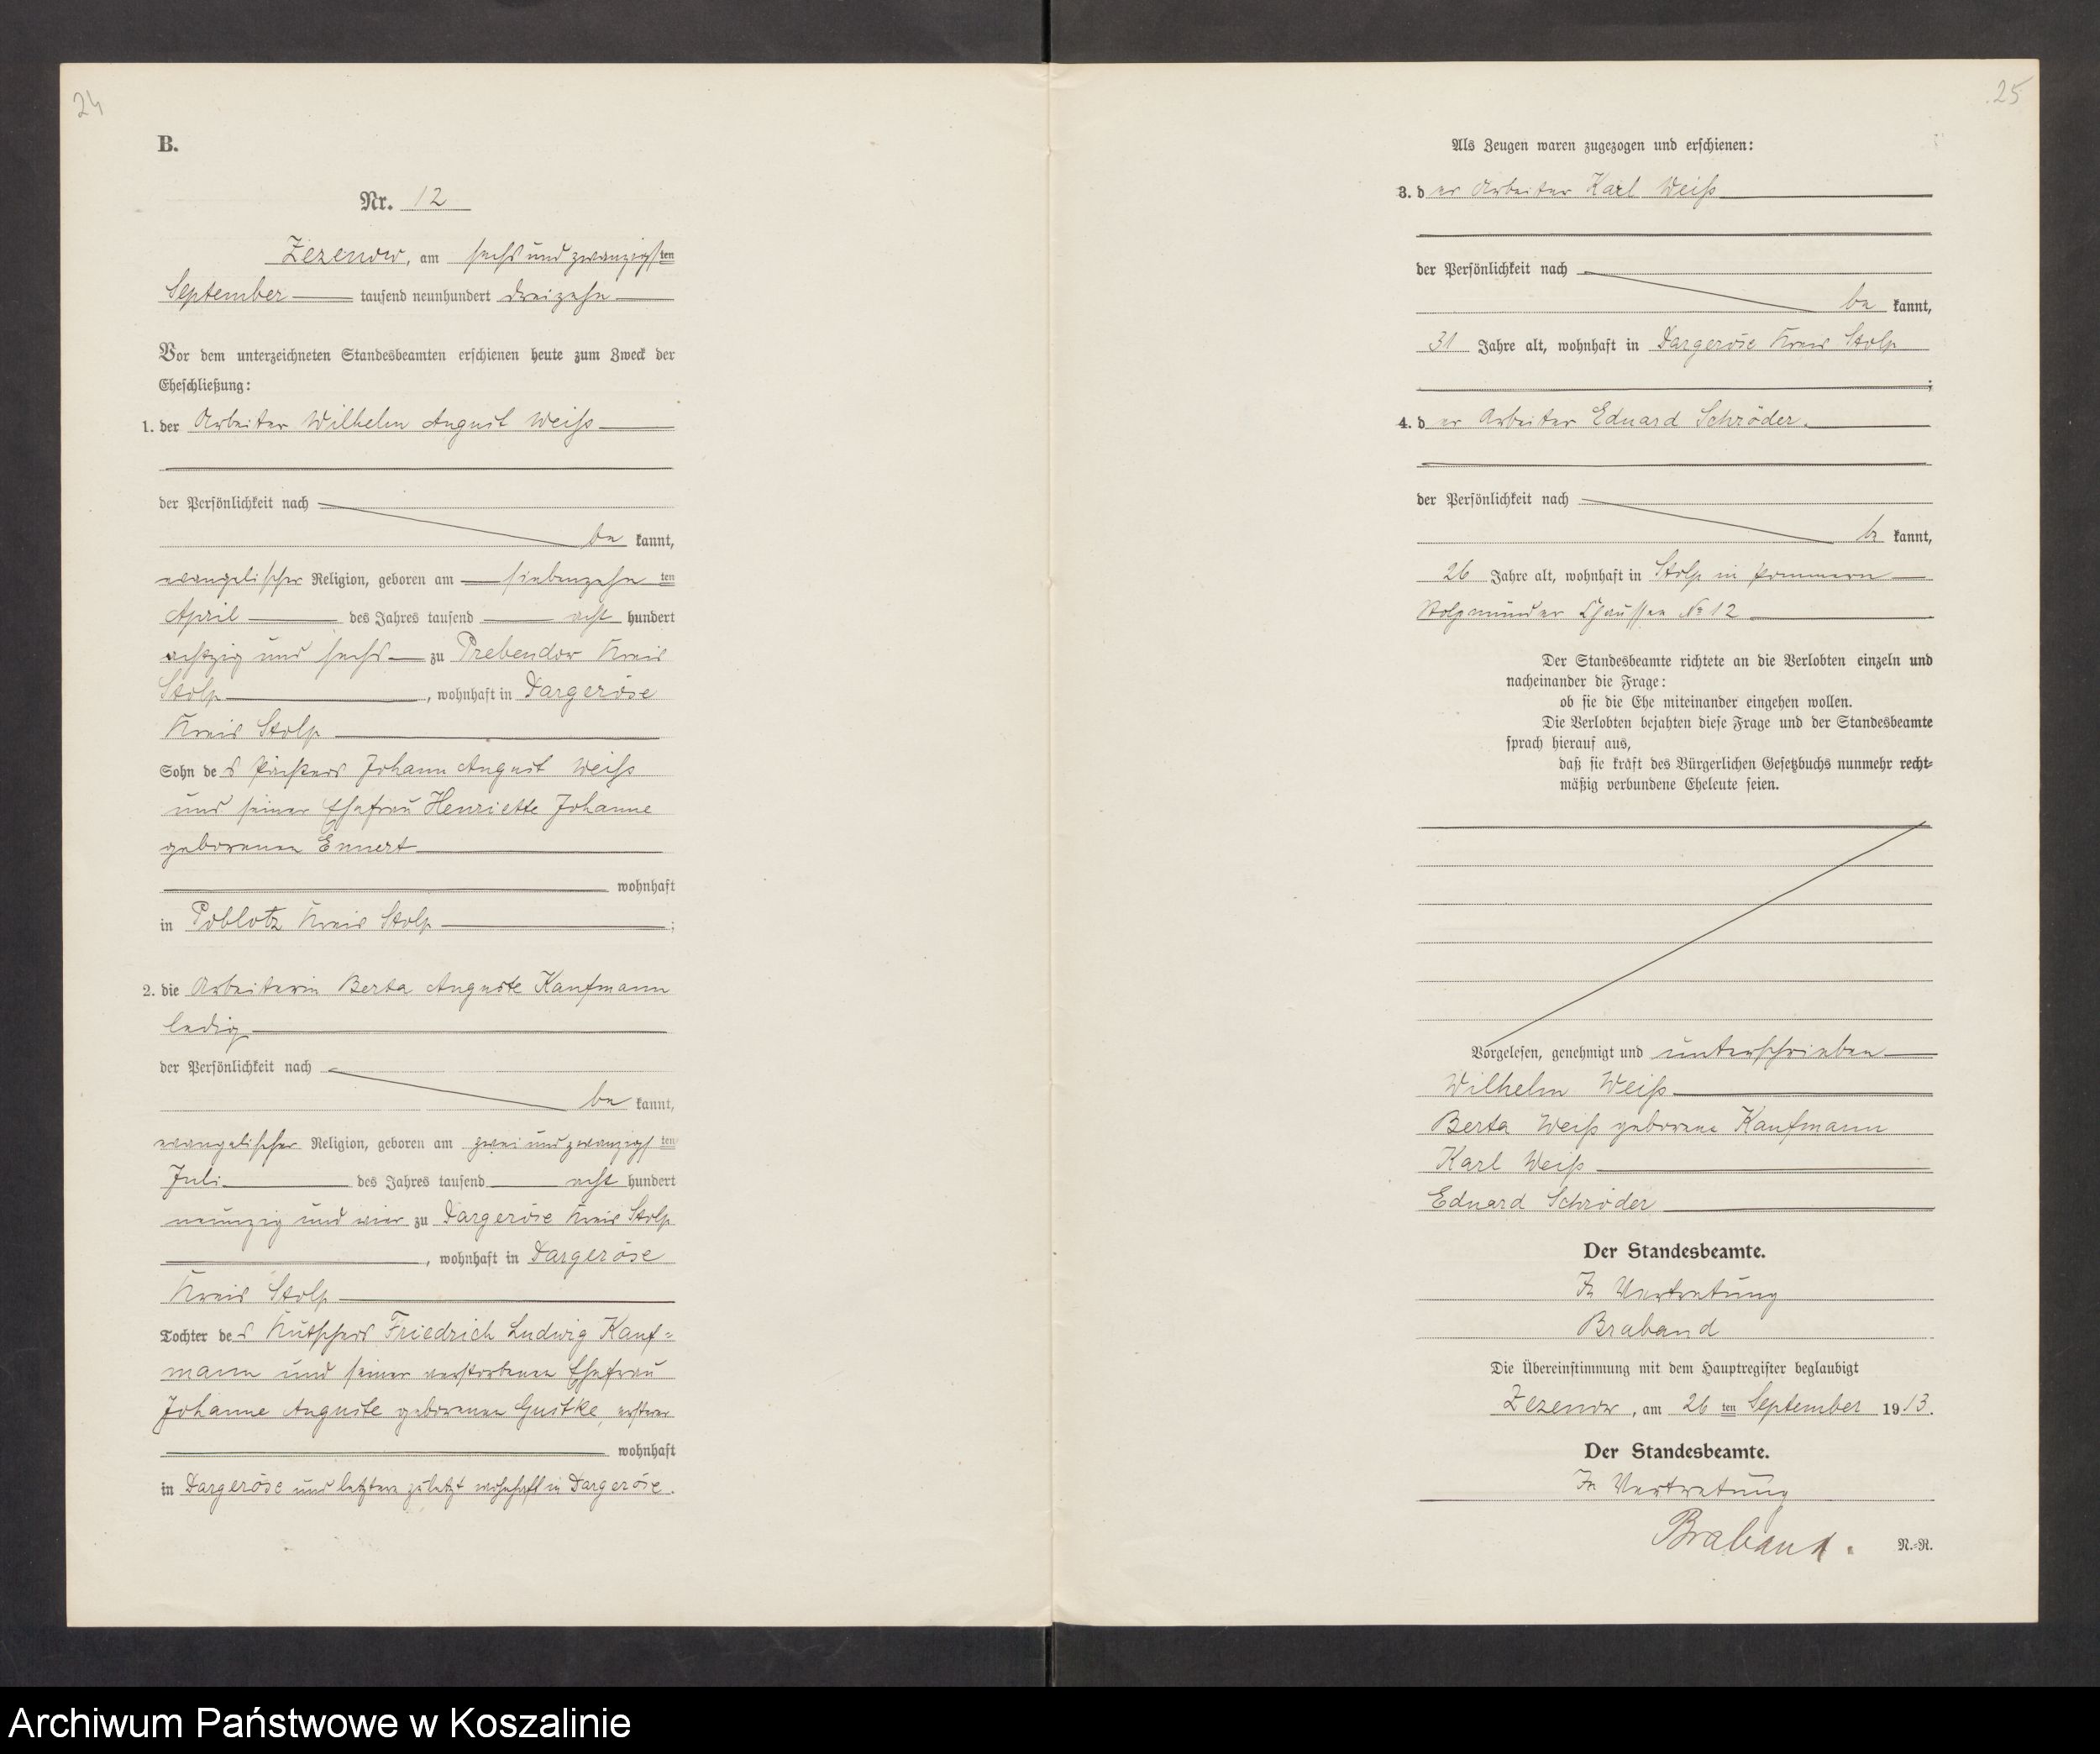 24
B.
Nr. 12
Zezenow, am sechs und zwanzigsten
September tausend neunhundert dreizehn
Vor dem unterzeichneten Standesbeamten erschienen heute zum Zweck der
Eheschließung:
1. der Arbeiter Wilhelm August Weiß
der Persönlichkeit nach
be kannt,
evangelischer Religion, geboren am siebenzehn ten
April des Jahres tausend acht hundert
achtzig und sechs zu Prebendow Kreis
Stolp, wohnhaft in Dargeröse
Kreis Stolp
Sohn des Pächters Johann August Weiß
und seiner Ehefrau Henriette Johanne
geborenen Ennert
wohnhaft
in Poblotz Kreis Stolp;
2. die Arbeiterin Berta Auguste Kaufmann
ledig
der Persönlichkeit nach
be kannt,
evangelischer Religion, geboren am zwei und zwanzigsten
Juli des Jahres tausend acht hundert
neunzig und vier zu Dargeröse Kreis Stolp
, wohnhaft in Dargeröse
Kreis Stolp
Tochter des Kutschers Friedrich Ludwig Kauf=
mann und seiner verstorbenen Ehefrau
Johanne Auguste geborenen Gustke, ersterer
wohnhaft
in Dargeröse und letztere zuletzt wohnhaft in Dargeröse.
25
Als Zeugen waren zugezogen und erschienen:
3. der Arbeiter Karl Weiß
der Persönlichkeit nach
be kannt,
31 Jahre alt, wohnhaft in Dargeröse Kreis Stolp
;
4. der Arbeiter Eduard Schröder.
der Persönlichkeit nach
be kannt,
26 Jahre alt, wohnhaft in Stolp in Pommern
Stolpmünder Chaussee No 12
Der Standesbeamte richtete an die Verlobten einzeln und
nacheinander die Frage:
ob sie die Ehe miteinander eingehen wollen.
Die Verlobten bejahten diese Frage und der Standesbeamte
sprach hierauf aus,
daß sie kraft des Bürgerlichen Gesetzbuchs nunmehr recht=
mäßig verbundene Eheleute seien.
Vorgelesen, genehmigt und unterschrieben
Wilhelm Weiß
Berta Weiß geborene Kaufmann
Karl Weiß
Eduard Schröder
Der Standesbeamte.
In Vertretung
Braband
Die Übereinstimmung mit dem Hauptregister beglaubigt
Zezenow, am 26 ten September 1913.
Der Standesbeamte.
In Vertretung
Braband.
N.=R.
Archiwum Państwowe w Koszalinie